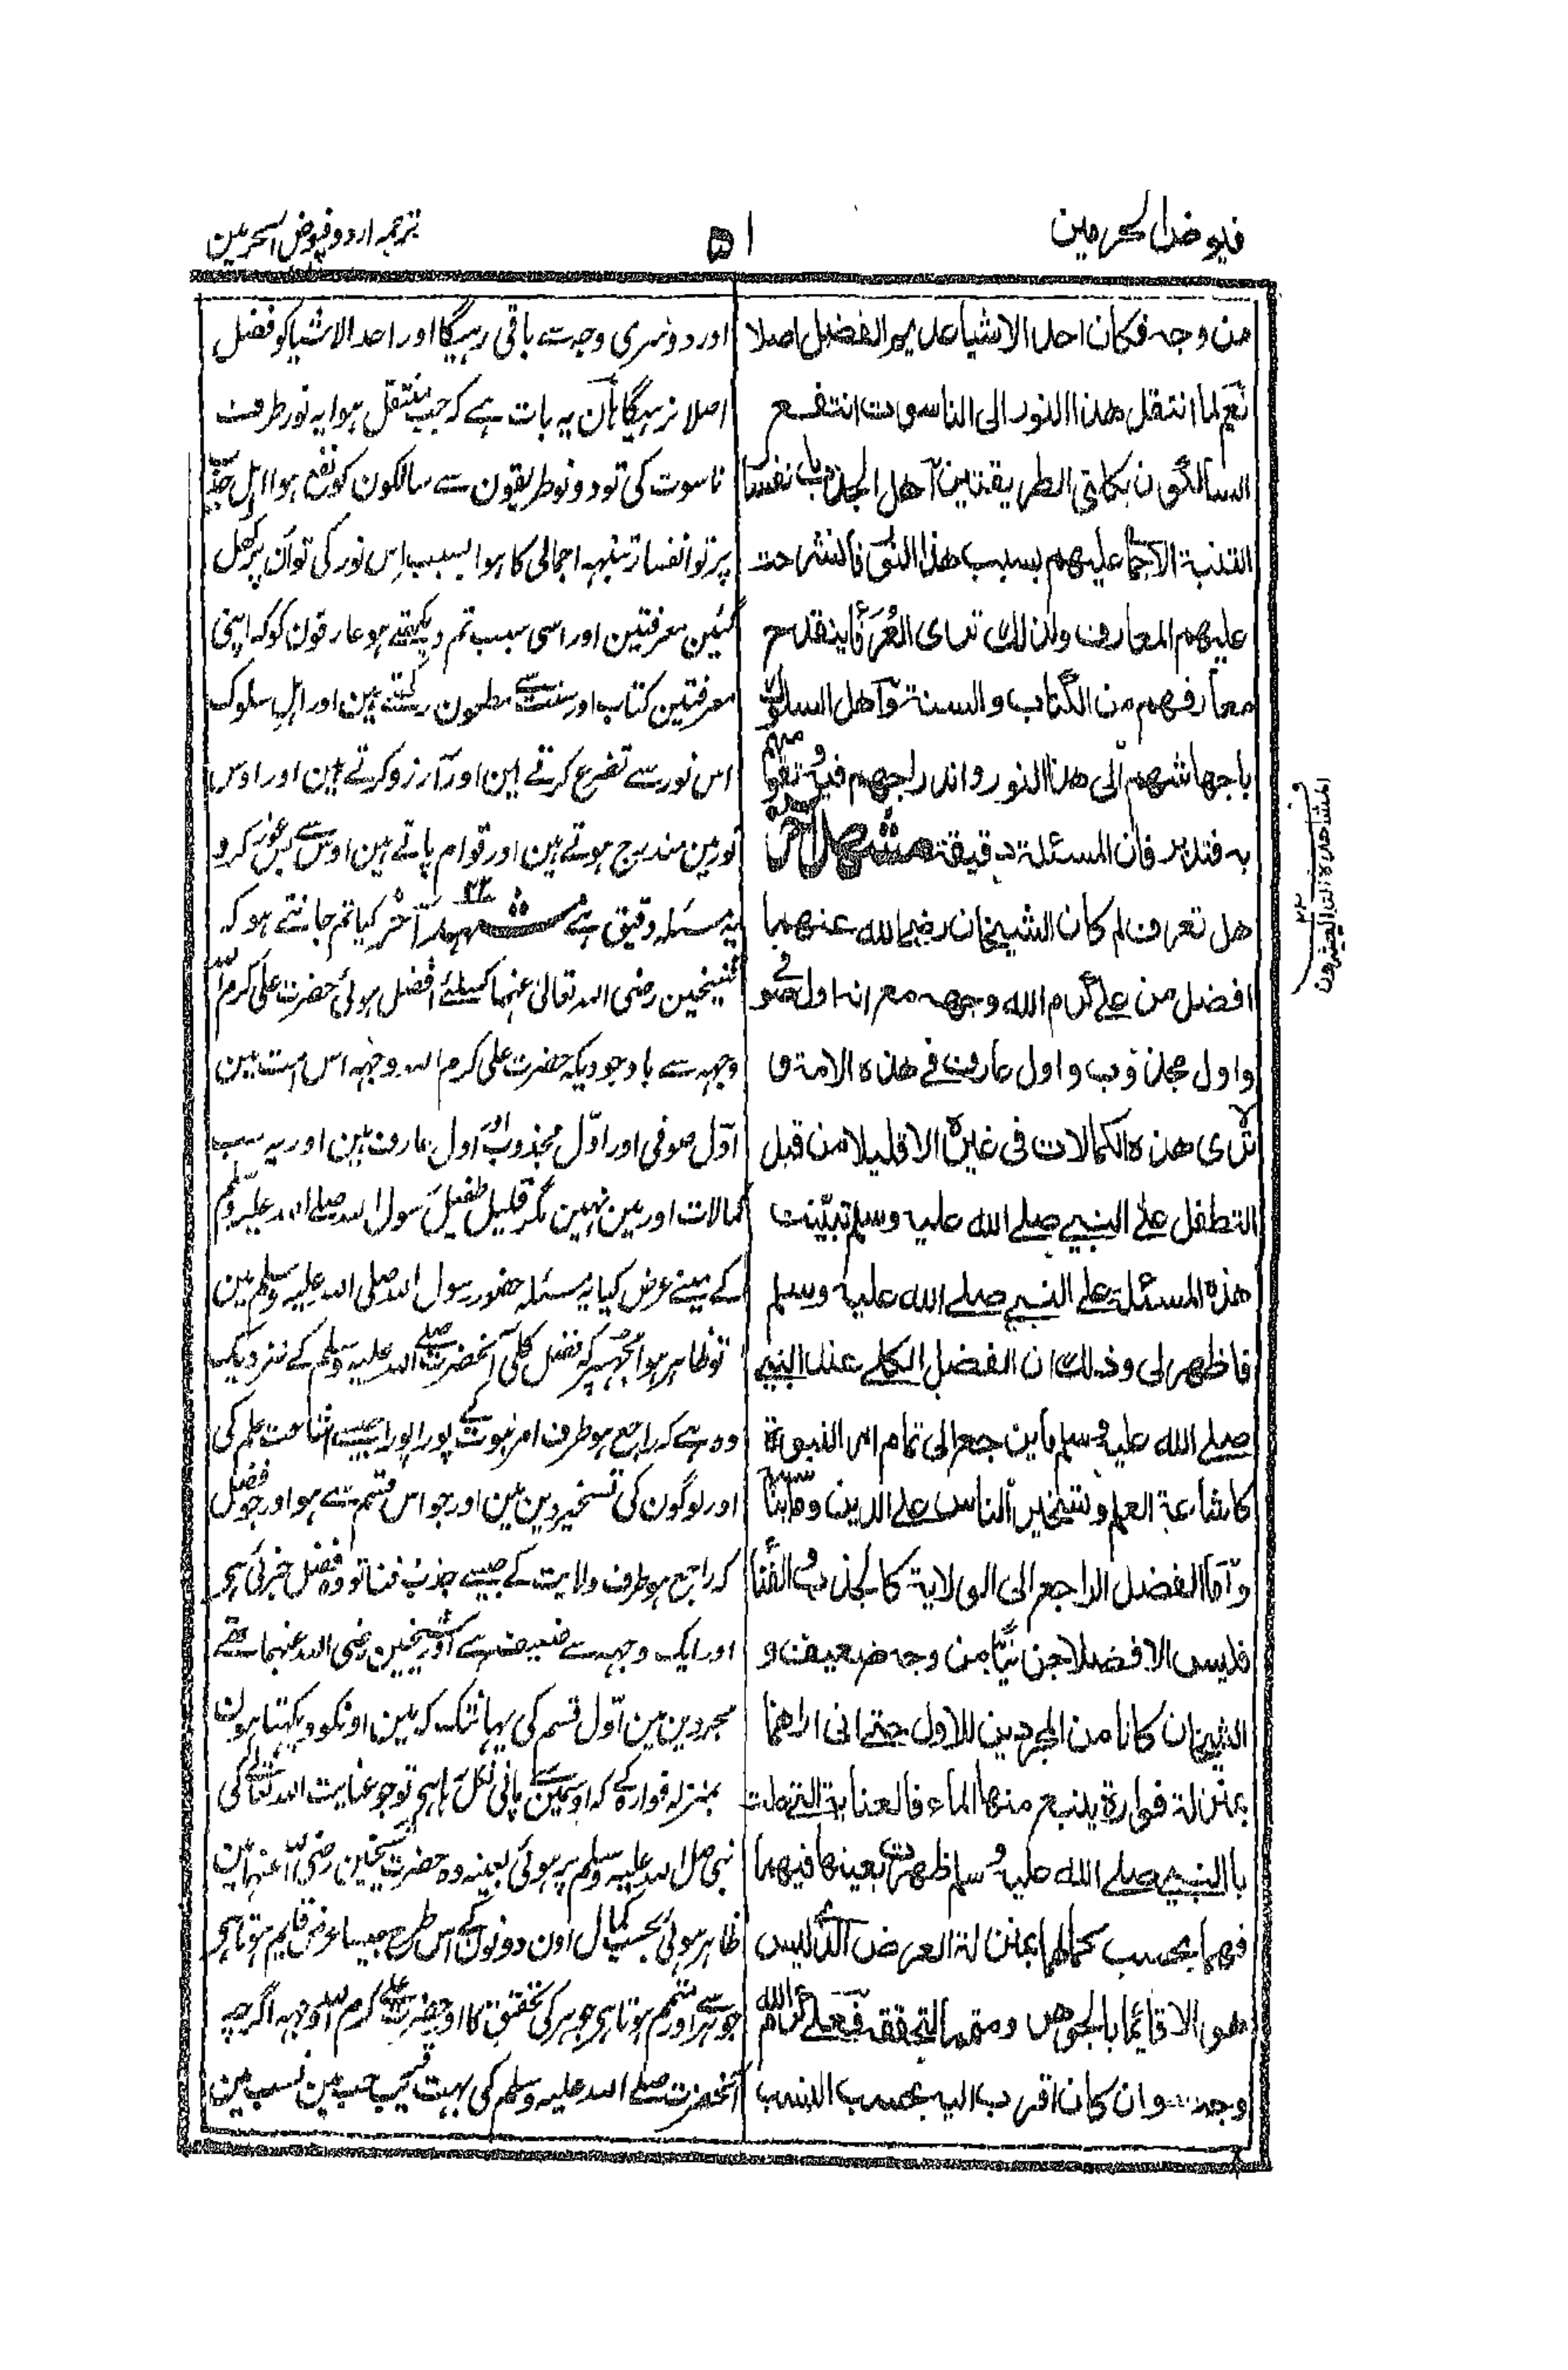 فیوض الحرمین
۵۱
ترجمہ اردو فیوض الحرمین
من وجہ فکان احد الاشیا عدیم الفضل اصلا
نعم لما انتقل هذا النور الی الناسوت انتفع
السالکون بکلتی الطریقتین اهل الجذب نفسا
التنبۃ الاجما علیهم بسبب هذا النور فانشرحت
علیهم المعارف ولذلک تری العرفاء ینقدح
معارفهم من الکتاب والسنۃ واهل السلوک
باجهاشهم الی هذا النور واندراجهم فیہ وتقومهم
بہ فتدبر فان المسئلۃ دقیقۃ مشهد آخر
هل تعرف لم کان الشیخان رضی الله عنهما
افضل من علی کرم الله وجهہ مع انہ اول صوفی
واول مجذوب واول عارف فی هذہ الامۃ و
لا تری هذہ الکمالات فی غیرہ الا قلیلا من قبل
التطفل علی النبی صلے الله علیہ وسلم تبینت
هذہ المسئلۃ علی النبی صلے الله علیہ وسلم
فاظهر لی وذلک ان الفضل الکلی عند النبی
صلے الله علیہ وسلم ماین جع الی تمام امر النبوۃ
کاشاعۃ العلم وتسخیر الناس علی الدین وما یناسبہ
واما الفضل الراجع الی الولایۃ کالجذب والفنا
فلیس الا فضلا جزئیا من وجہ ضعیف و
الشیخان کانا من المجردین للاول حتے انی اراهما
بمنزلۃ فوارۃ ینبع منها الماء فالعنایۃ التی حلت
بالنبی صلے الله علیہ وسلم ظهرت بعینها فیهما
فهما بحسب کمالهما بمنزلۃ العرض الذی لیس
هو الا قائما بالجوهر ومتمما لتحققہ فعلی کرم الله
وجهہ وان کان اقرب الیہ بحسب النسب
اور دوسری وجہ سے باقی رہیگا اور احد الاشیا کو فضل
اصلا نرہیگا ہان یہ بات ہے کہ جب منتقل ہوا یہ نور طرف
ناسوت کی تو دونو طریقون سے سالکون کو نفع ہوا اہل جذب
پر تو انفساز تنبہہ اجمالی کا ہوا بسبب اس نور کی تو اُن پر کھل
گئین معرفتین اور اسی سبب تم دیکہتے ہو عارفون کو کہ اپنی
معرفتین کتاب اور سنت سے رکتے ہین اور اہل سلوک
اس نور سے تضرع کرتے ہین اور آرزو کرتے ہین اور اوس
نور مین مندرج ہوتے ہین اور قوام پاتے ہین اوس سے پس غور کرو
یہ مسئلہ دقیق ہے مشہد آخر ۲۳ کیا تم جانتے ہو کہ
شیخین رضی اللہ تعالیٰ عنہما کسلئے افضل ہوئی حضرت علی کرم اللہ
وجہہ سے باوجودیکہ حضرت علی کرم اللہ وجہہ اس امت مین
اوّل صوفی اور اوّل مجذوب اور اول عارف ہین اور یہ سب
کمالات اور مین نہین مگر قلیل طفیل رسول اللہ صلے اللہ علیہ وسلم
کے مینے عرض کیا یہ مسئلہ حضور رسول اللہ صلی اللہ علیہ وسلم مین
تو ظاہر ہوا مجہپر کہ فضل کلی آنحضرت صلے اللہ علیہ وسلم کے نزدیک
وہ ہے کہ راجع ہو طرف امر نبوت کے پورا پورا جیسے اشاعت علم کی
اور لوگون کی تسخیر دین مین اور جو اس قسم سے ہو اور جو فضل
کہ راجع ہو طرف ولایت کے جیسے جذب فنا تو وہ فضل جزئی ہی
اور ایک وجہہ سے ضعیف ہے اور شیخین رضی اللہ عنہما تھے
مجردین مین اوّل قسم کی یہانتک کہ مین اونکو دیکہتا ہون
بمنزلہ فوارہ کے کہ اوسمین سے پانی نکل رہا ہی تو جو عنایت اللہ تعالے کی
نبی صل اللہ علیہ وسلم پر ہوئی بعینہ وہ حضرت شیخین رضی اللہ عنہما مین
ظاہر ہوئی بحسب کمال اون دونون کے اس طرح جیسا عرض قایم ہوتا ہی
جوہر سے اور متمم ہوتا ہی جوہر کی تحقق کا اور حضرت علے کرم اللہ وجہہ اگرچہ
آنحضرت صلے اللہ علیہ وسلم کی بہت قریب ہین نسب مین
المشاهدۃ العشرون
۲۳